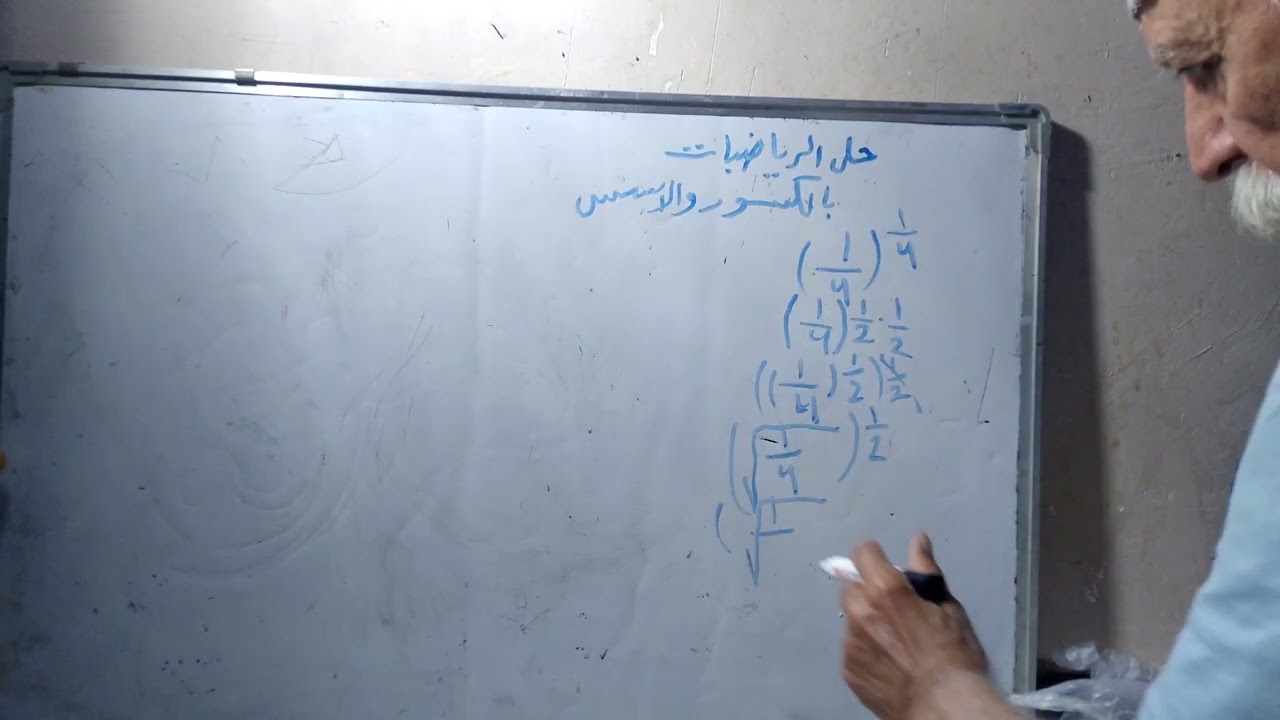 حل الرياضيات
بالكسور والاسس
(1/4)^1/4
(1/4)^1/2·1/2
((1/4)^1/2)^1/2
(√1/4)^1/2
(√1